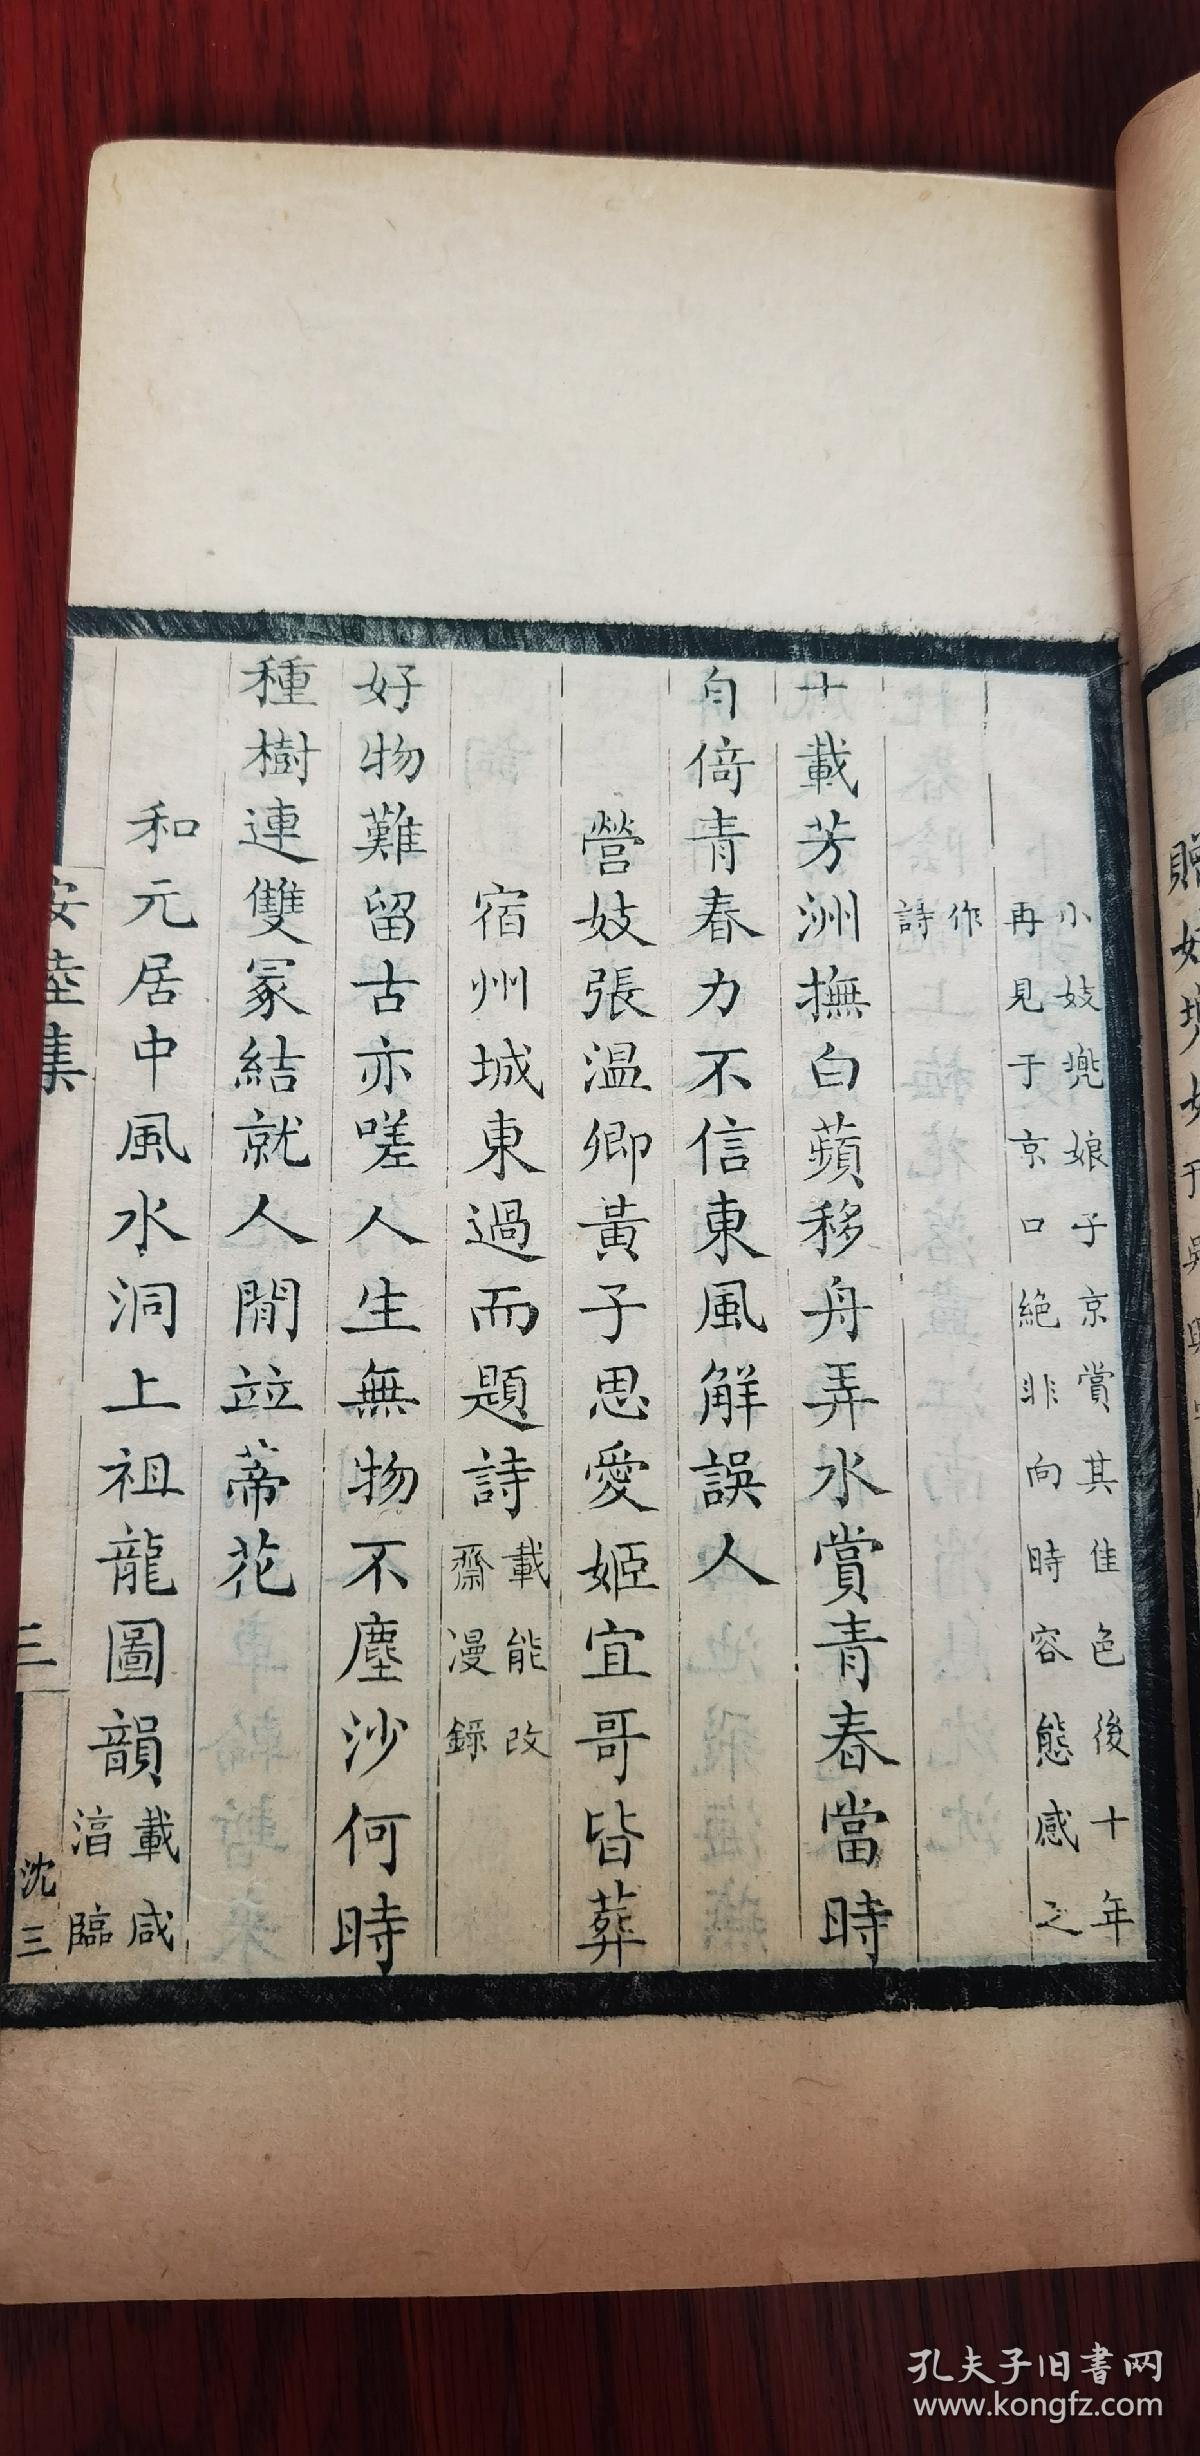 小妓兠娘子京賞其佳色後十年
再見于京口絶非向時容態感之
作
詩
十載芳洲撫白蘋移舟弄水賞青春當時
自倚青春力不信東風解誤人
營妓張温卿黃子思愛姬宜哥皆葬
宿州城東過而題詩載能改
齋漫錄
好物難留古亦嗟人生無物不塵沙何時
種樹連雙冡結就人閒竝蒂花
和元居中風水洞上祖龍圖韻載咸
淳臨
安陸集
三
沈三
孔夫子旧書网
www.kongfz.com